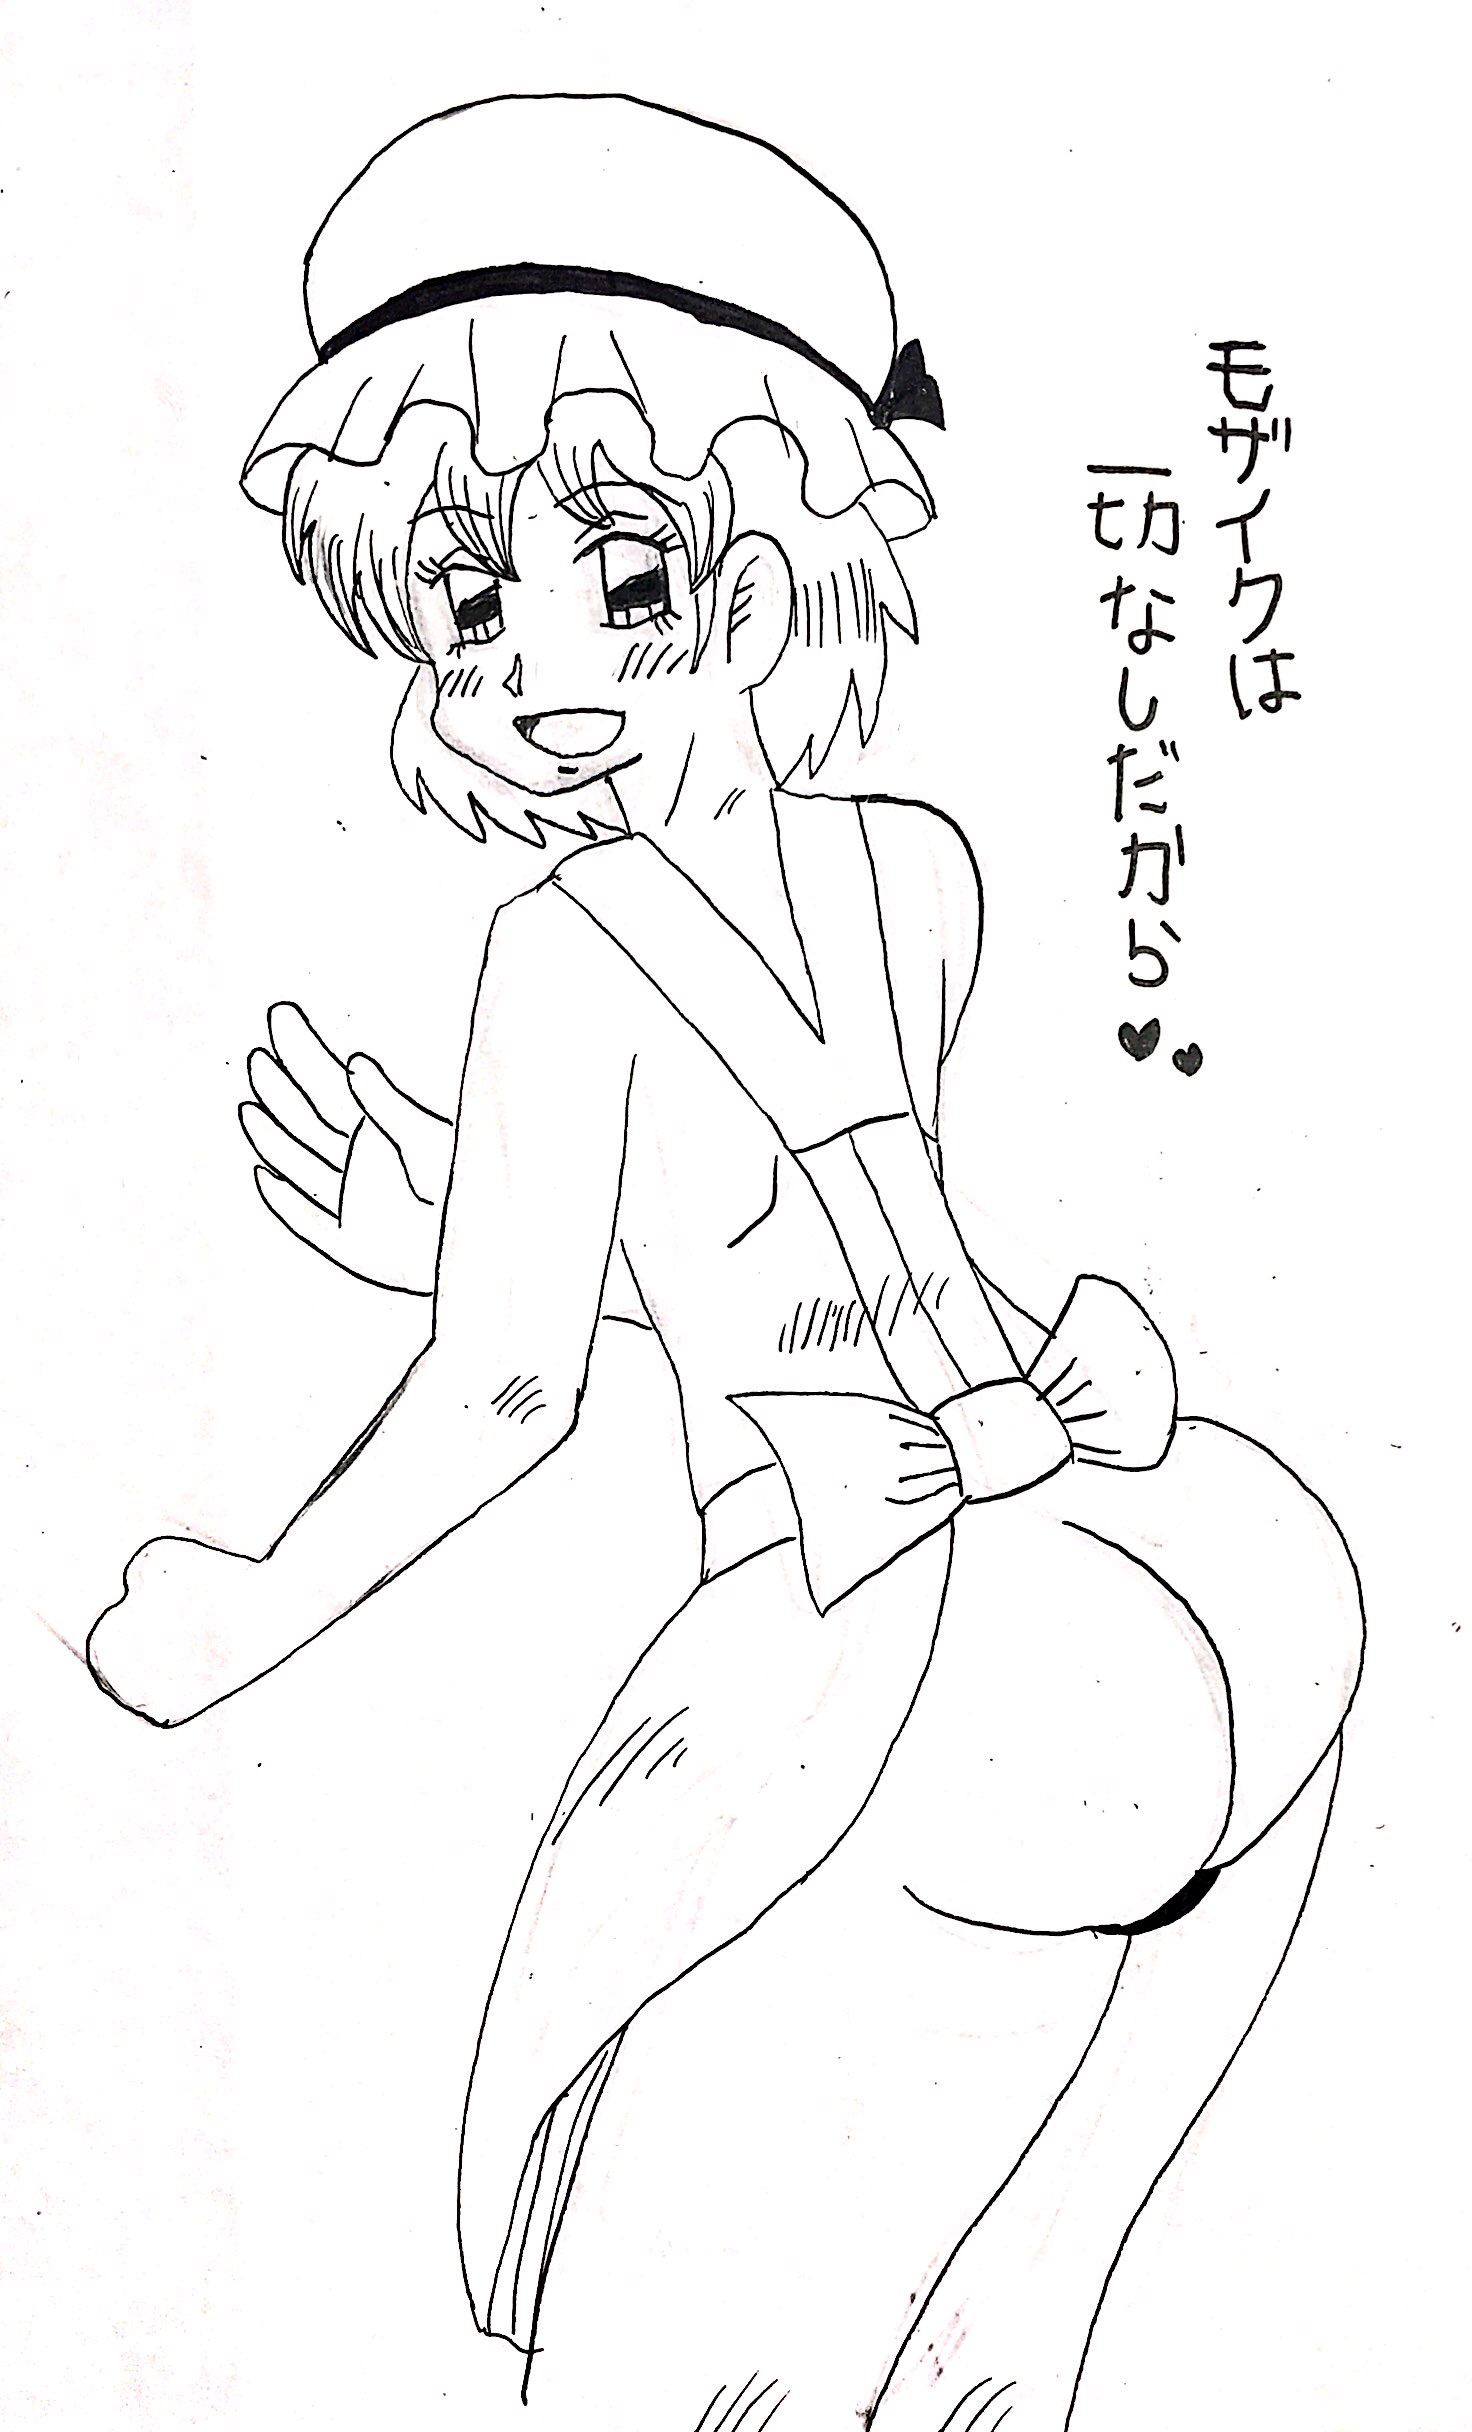 モザイクは
一切なしだから♥♥